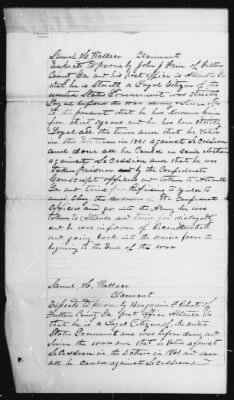 Samuel H. Wallace Claimant
Expects to prove by John J Fain of Fulton
County Ga and his post office is Atlanta Ga
that he is strictly a Loyal Citizen of the
united States Government was strictly
Loyal before the war during & since up
to the present that he has known him
for thirty years and he has been strictly
Loyal all the time and that he voted
in the Election in 1861 against Secession
and done all he Could in said election
against Secession and that he was
taken prisoner by the Confederate
Conscript officers and taken to Atlanta
Ga and tried for Refusing to yield to
the orders of the Confederate
officers and go into the Army he was
taken to Atlanta and tried for disloyalty
and he was in favor of
and going back into the union from the
begining to the End of the war
Samuel H. Wallace
Claimant
Expects to prove by Benjamin F White of
Fulton County Ga post office Atlanta Ga
that he is a Loyal Citizen of the united
States Government and was before during and
Since the war and that he voted against
Secession in the Election in 1861 and done
all he Could against Secession and